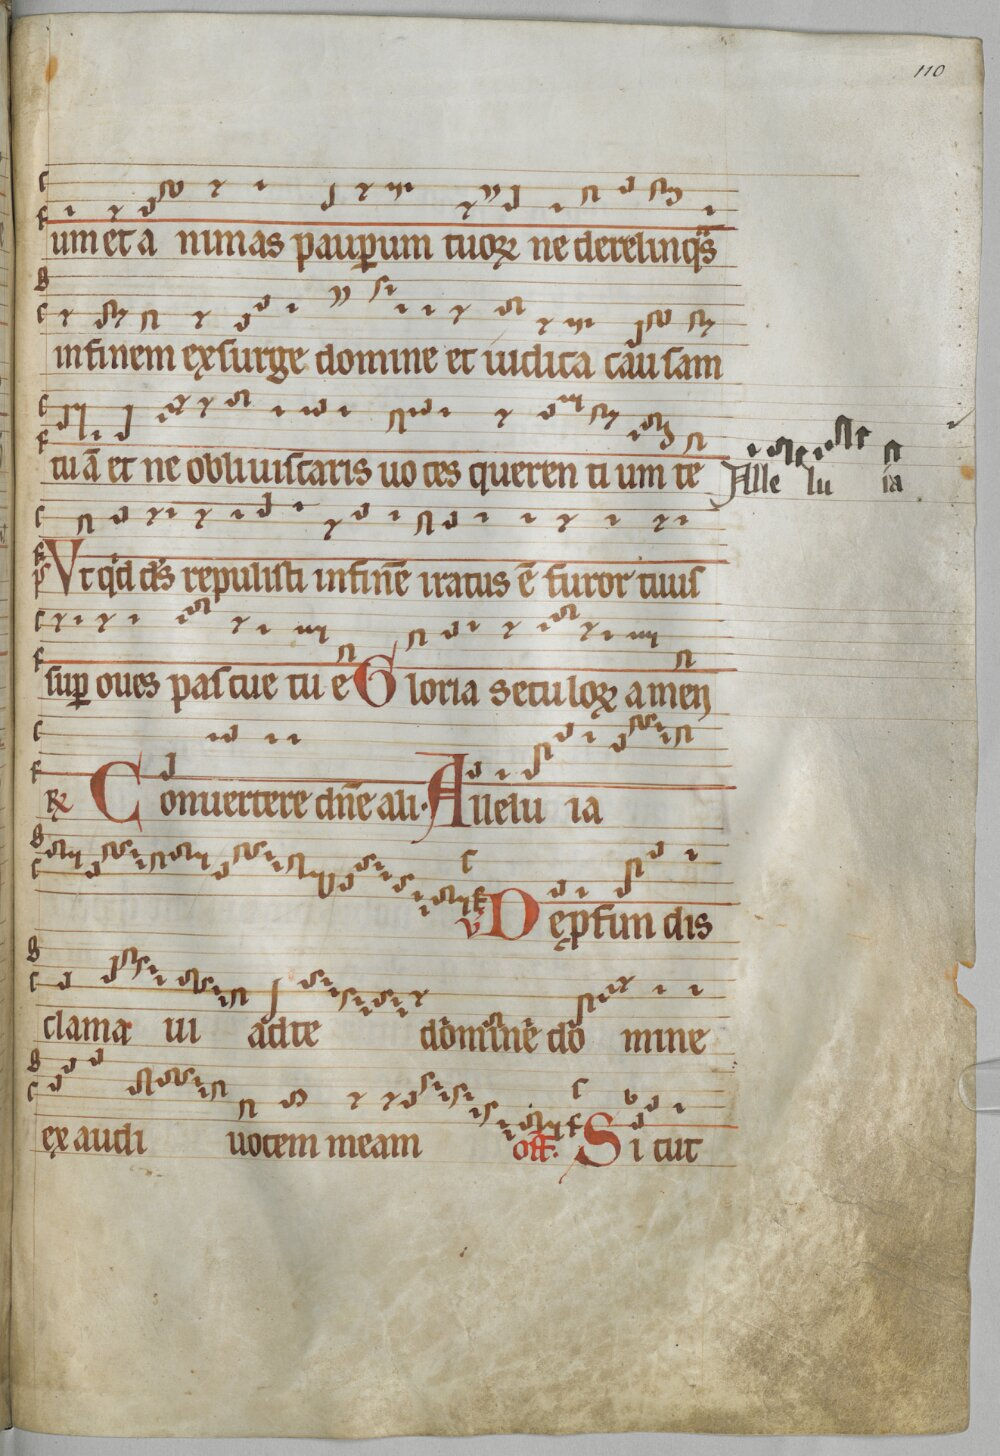 110
um et a nimas pauꝑum tuoꝝ ne derelinq̄s
infinem exsurge domine et iudica causam
tuā et ne obliuiscaris uo ces queren ti um te
Alle lu ia
ps Vt qd ds repulisti infinē iratus ē furor tuus
suꝑ oues pascue tu e Gloria seculoꝝ amen
℟ Conuertere dn̄e ali. Allelu ia
v̄ De ꝓfun dis
clama ui adte domine do mine
ex audi uocem meam off. Sicut